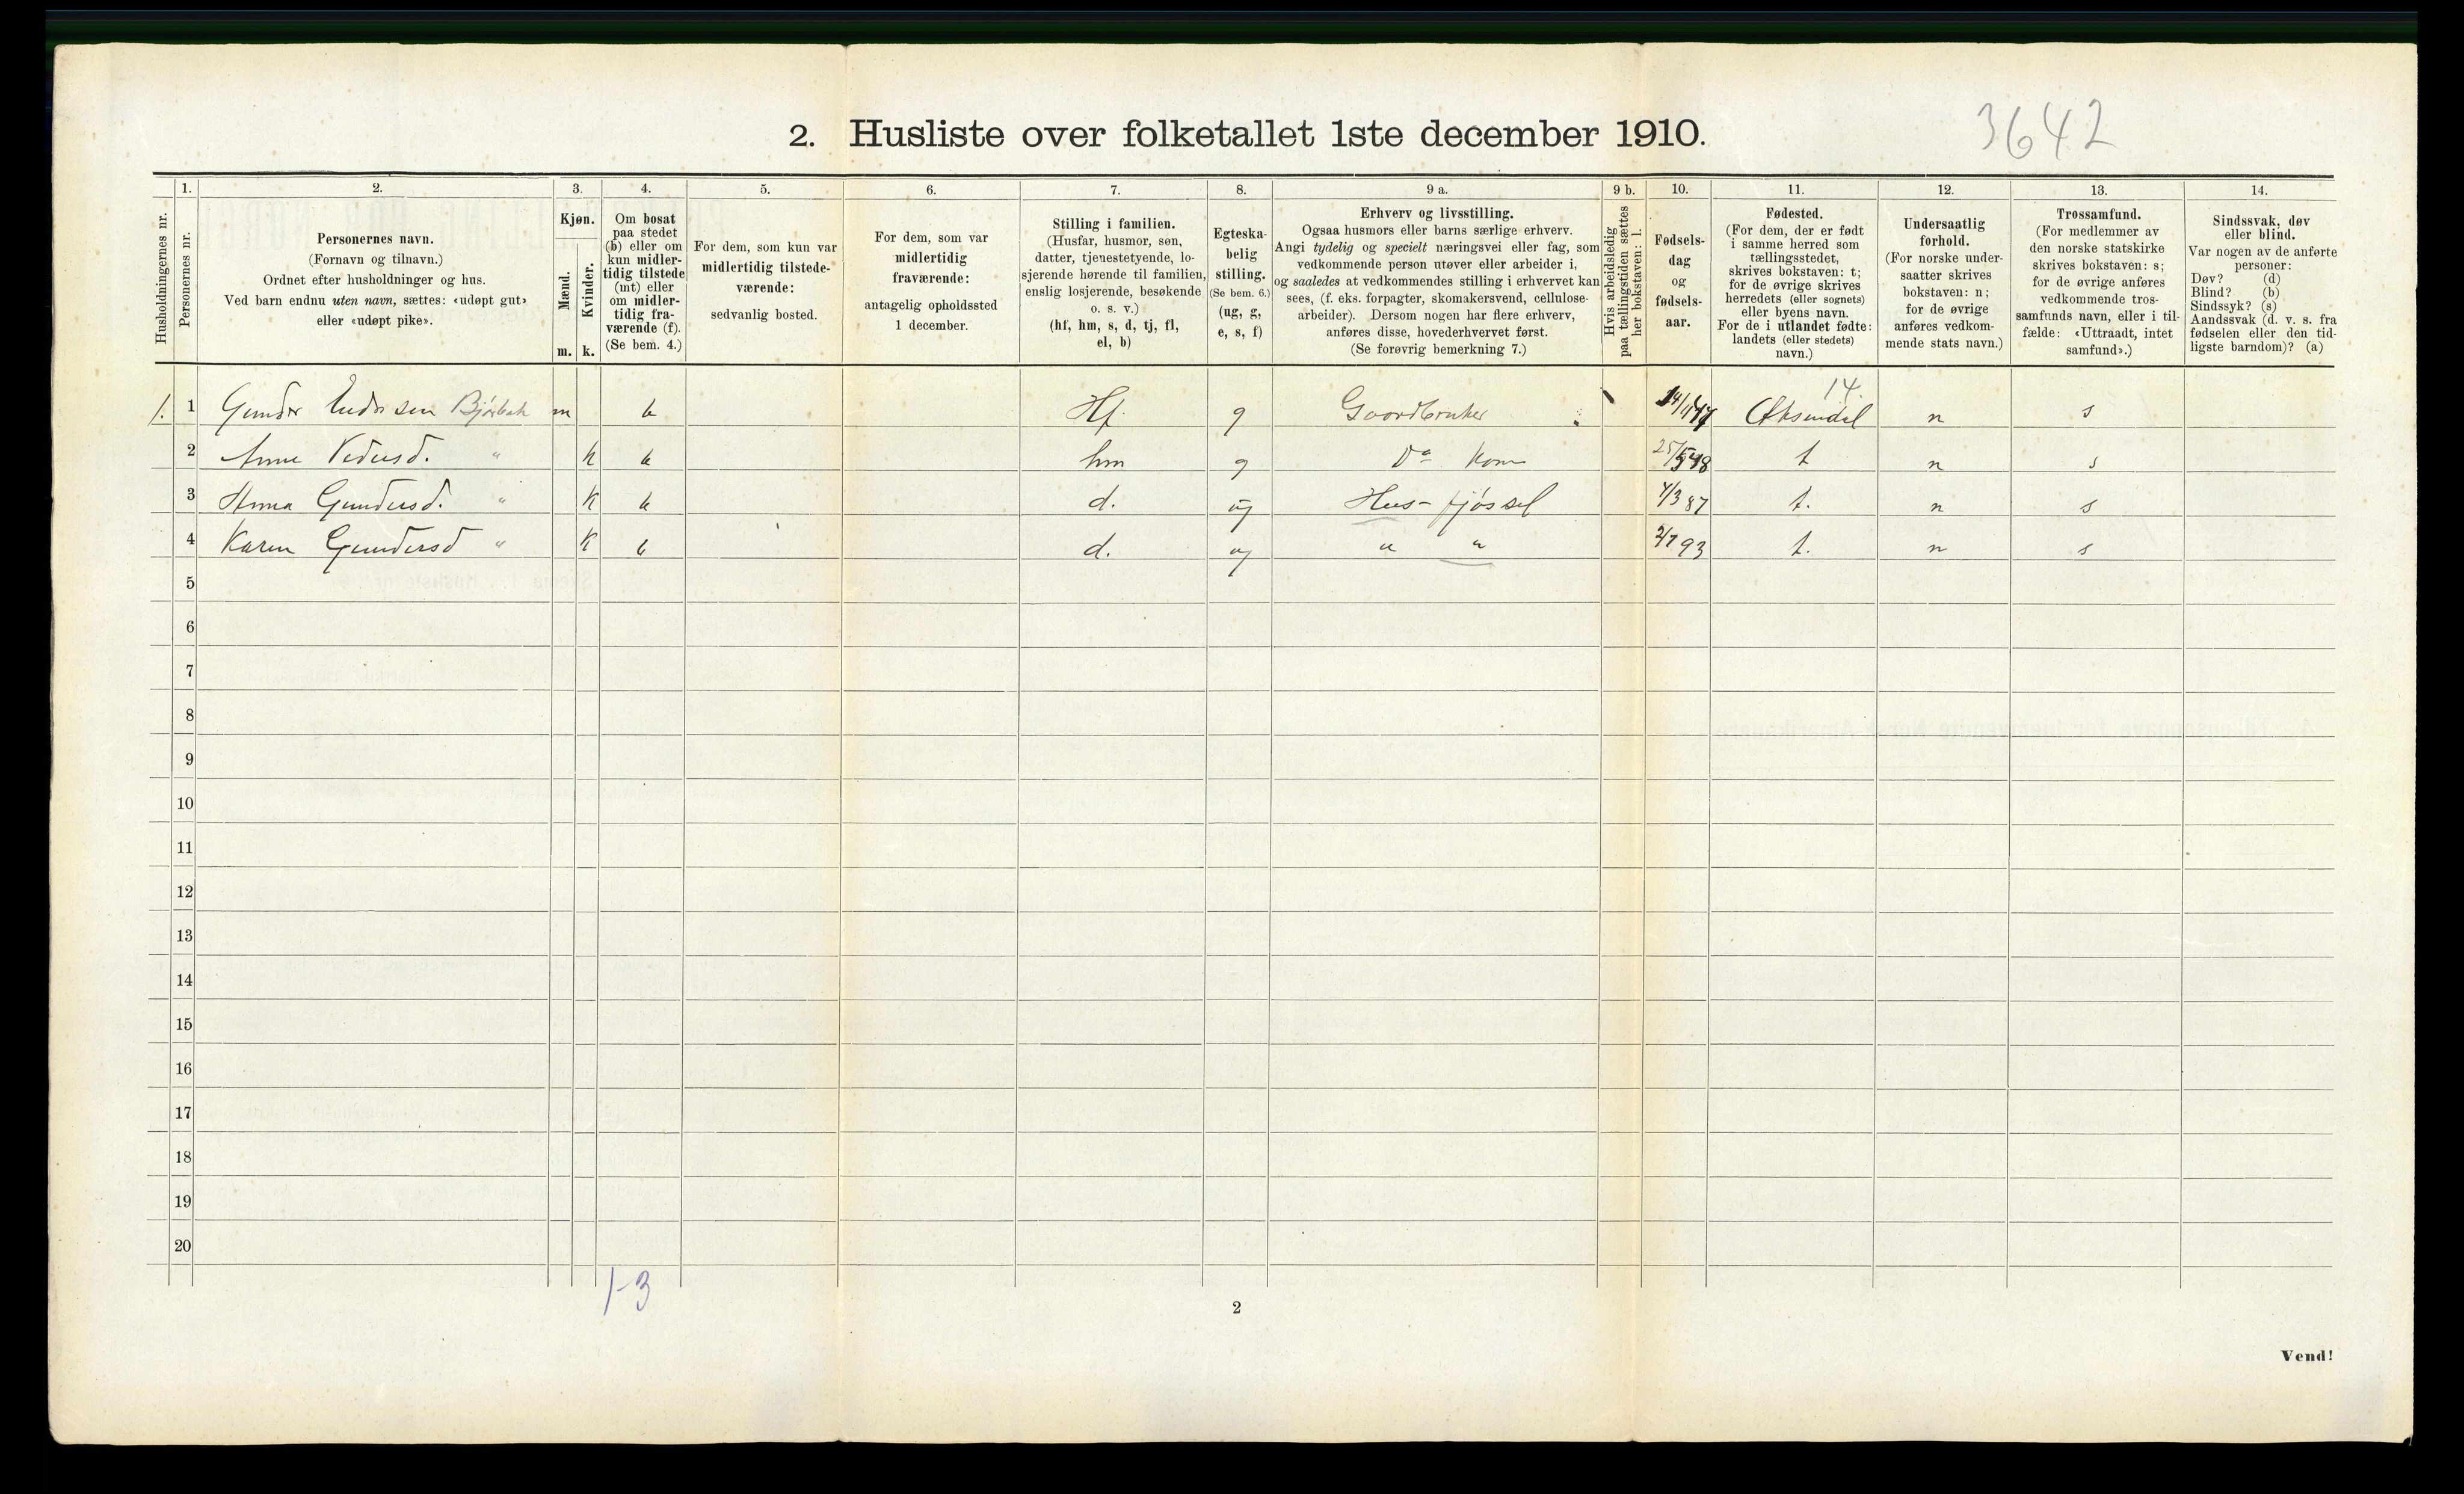 3642
2. Husliste over folketallet 1ste december 1910.
Husholdningernes nr.
1.
Personernes nr.
2.
Personernes navn.
(Fornavn og tilnavn.)
Ordnet efter husholdninger og hus.
Ved barn endnu uten navn, sættes: «udøpt gut»
eller «udøpt pike».
3.
Kjøn.
Mænd.
m.
Kvinder.
k.
4.
Om bosat
paa stedet
(b) eller om
kun midler-
tidig tilstede
(mt) eller
om midler-
tidig fra-
værende (f).
(Se bem. 4.)
5.
For dem, som kun var
midlertidig tilstede-
værende:
sedvanlig bosted.
6.
For dem, som var
midlertidig
fraværende:
antagelig opholdssted
1 december.
7.
Stilling i familien.
(Husfar, husmor, søn,
datter, tjenestetyende, lo-
sjerende hørende til familien,
enslig losjerende, besøkende
o. s. v.)
(hf, hm, s, d, tj, fl,
el, b)
8.
Egteska-
belig
stilling.
(Se bem. 6.)
(ug, g,
e, s, f)
9 a.
Erhverv og livsstilling.
Ogsaa husmors eller barns særlige erhverv.
Angi tydelig og specielt næringsvei eller fag, som
vedkommende person utøver eller arbeider i,
og saaledes at vedkommendes stilling i erhvervet kan
sees, (f. eks. forpagter, skomakersvend, cellulose-
arbeider). Dersom nogen har flere erhverv,
anføres disse, hovederhvervet først.
(Se forøvrig bemerkning 7.)
9 b.
Hvis arbeidsledig
paa tællingstiden sættes
her bokstaven: l.
10.
Fødsels-
dag
og
fødsels-
aar.
11.
Fødested.
(For dem, der er født
i samme herred som
tællingsstedet,
skrives bokstaven: t;
for de øvrige skrives
herredets (eller sognets)
eller byens navn.
For de i utlandet fødte:
landets (eller stedets)
navn.)
12.
Undersaatlig
forhold.
(For norske under-
saatter skrives
bokstaven: n;
for de øvrige
anføres vedkom-
mende stats navn.)
13.
Trossamfund.
(For medlemmer av
den norske statskirke
skrives bokstaven: s;
for de øvrige anføres
vedkommende tros-
samfunds navn, eller i til-
fælde: «Uttraadt, intet
samfund».)
14.
Sindssvak, døv
eller blind.
Var nogen av de anførte
personer:
Døv? (d)
Blind? (b)
Sindssyk? (s)
Aandssvak (d. v. s. fra
fødselen eller den tid-
ligste barndom)? (a)
14.
1. 1 Gunder m b Hf. g Gaardbruker n s
2 Anne " k b hm g Do kone t n s
3 Anna Gundersd. " k b d. ug Hus- fjøsstel 4/3 87 t. n s
4 Karen Gundersd " k b d. ug " " 2/7 93 t. n s
5
6
7
8
9
10
11
12
13
14
15
16
17
18
19
20
1-3
2
Vend!